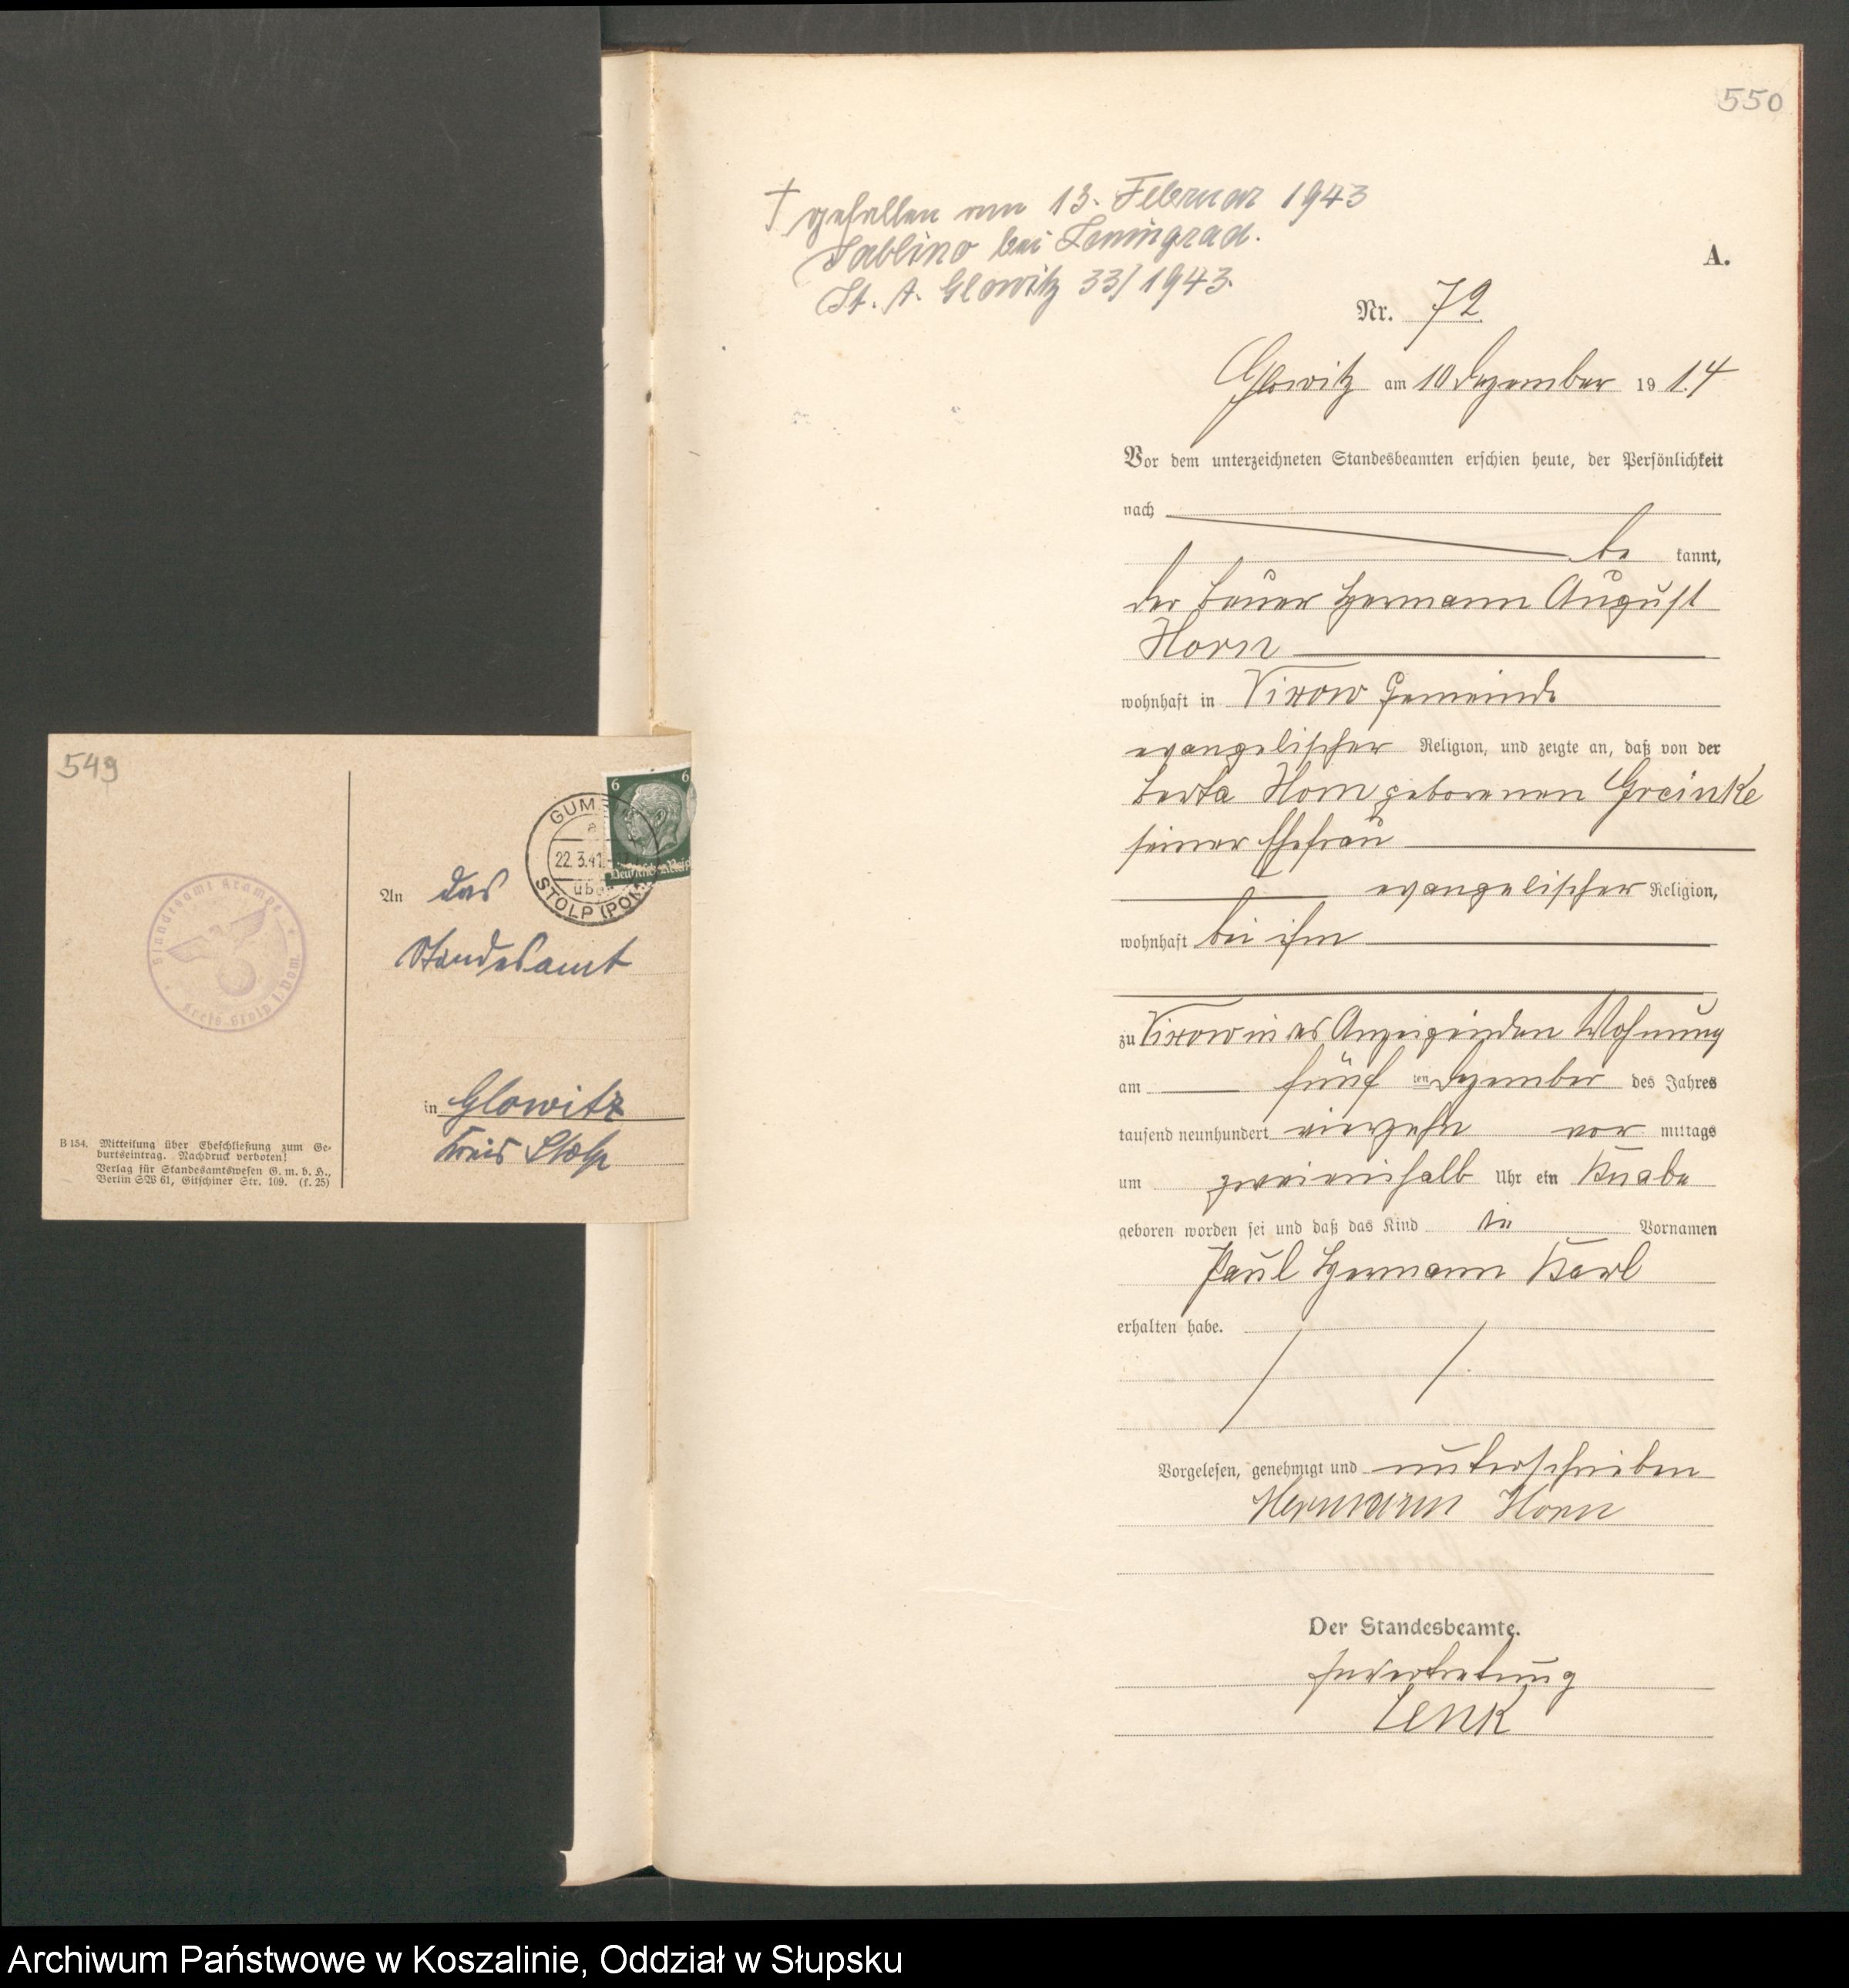 550
† gefallen am 13. Februar 1943
Sablino bei Leningrad.
St. A. Glowitz 33/1943.
A.
Nr. 72
Glowitz am 10 Dezember 1914
Vor dem unterzeichneten Standesbeamten erschien heute, der Persönlichkeit
nach
be kannt,
der Bauer Hermann August
Horn
wohnhaft in Vixow Gemeinde
evangelischer Religion, und zeigte an, daß von der
Berta Horn geborenen Greinke
seiner Ehefrau
evangelischer Religion,
wohnhaft bei ihm
zu Vixow in des Anzeigenden Wohnung
am fünf ten Dezember des Jahres
tausend neunhundert vierzehn vor mittags
um zweieinhalb Uhr ein Knabe
geboren worden sei und daß das Kind die Vornamen
Paul Hermann Karl
erhalten habe.
Vorgelesen, genehmigt und unterschrieben
Hermann Horn
Der Standesbeamte.
In Vertretung
Lenk
549
6 6
Deutsches Reich
22.3.41
über
STOLP (POM)
Standesamt
Kreis Stolp i. Pom.
An das
Standesamt
in Glowitz
Kreis Stolp
B 154. Mitteilung über Eheschließung zum Ge-
burtseintrag. Nachdruck verboten!
Verlag für Standesamtswesen G. m. b. H.,
Berlin SW 61, Gitschiner Str. 109. (f. 25)
Archiwum Państwowe w Koszalinie, Oddział w Słupsku